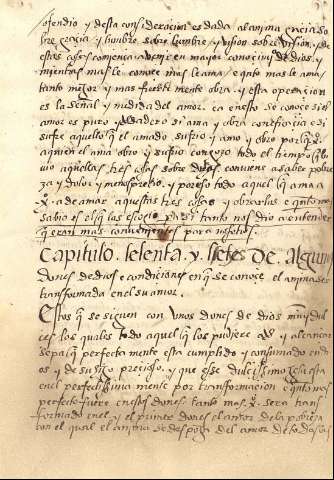 ofendio y desta consideracion es dada al anima gracia so
bre gracia y lumbre sobre lumbre y vision sobre vision y de
estas cosas comiença a venir en mayor conocimjº de dios y
mientras mas le conoce mas le ama e quto mas le ama
tanto mejor y mas fuerte mente obra y esta operacion
es la señal y medida del amor ca en esto se conoce si el
amor es puro y verdadero si ama y obra
sufre aquello que el amado sufrio y amo y obro porque
a quien el ama obro y sufrio consigo todo el tiempo que bi
vio aquellas tres cosas sobre dichas conviene a saber pobre
za y dolor y menosprecio y por eso todo aquel que ama a
a de amar aquestas tres cosas y obrarlas e
sabio es el que las escogio tanto nos dio a entender
que eran mas convenientes para nosotros
Capitulo. sesenta. y. siete. de. algun
dones de dios e condiciones en que se conoce el anima ser
transformada en el su amor.
Estos que se siguen son unos dones de dios muy dul
ces los quales todo aquel que los pudiere aver y alcançar
sepa que perfecta mente esta cumplido y consumado en di
os y de su precioso y que ese dulcissimo jesu esta
en el perfectissima mente por transformacion e quto mas
perfecto fuere en estos dones tanto mas sera trans
formado en el y el primer don es el amor de la pobreza
con el qual el anima se despoja del amor de todas las